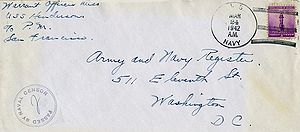 Warrant Officers Mess
USS Henderson
℅ P.M.
San Francisco.
U.S.
MAR
24
1942
A.M.
NAVY
Army and Navy Register,
511 Eleventh St.
Washington
D.C.
PASSED BY NAVAL CENSOR